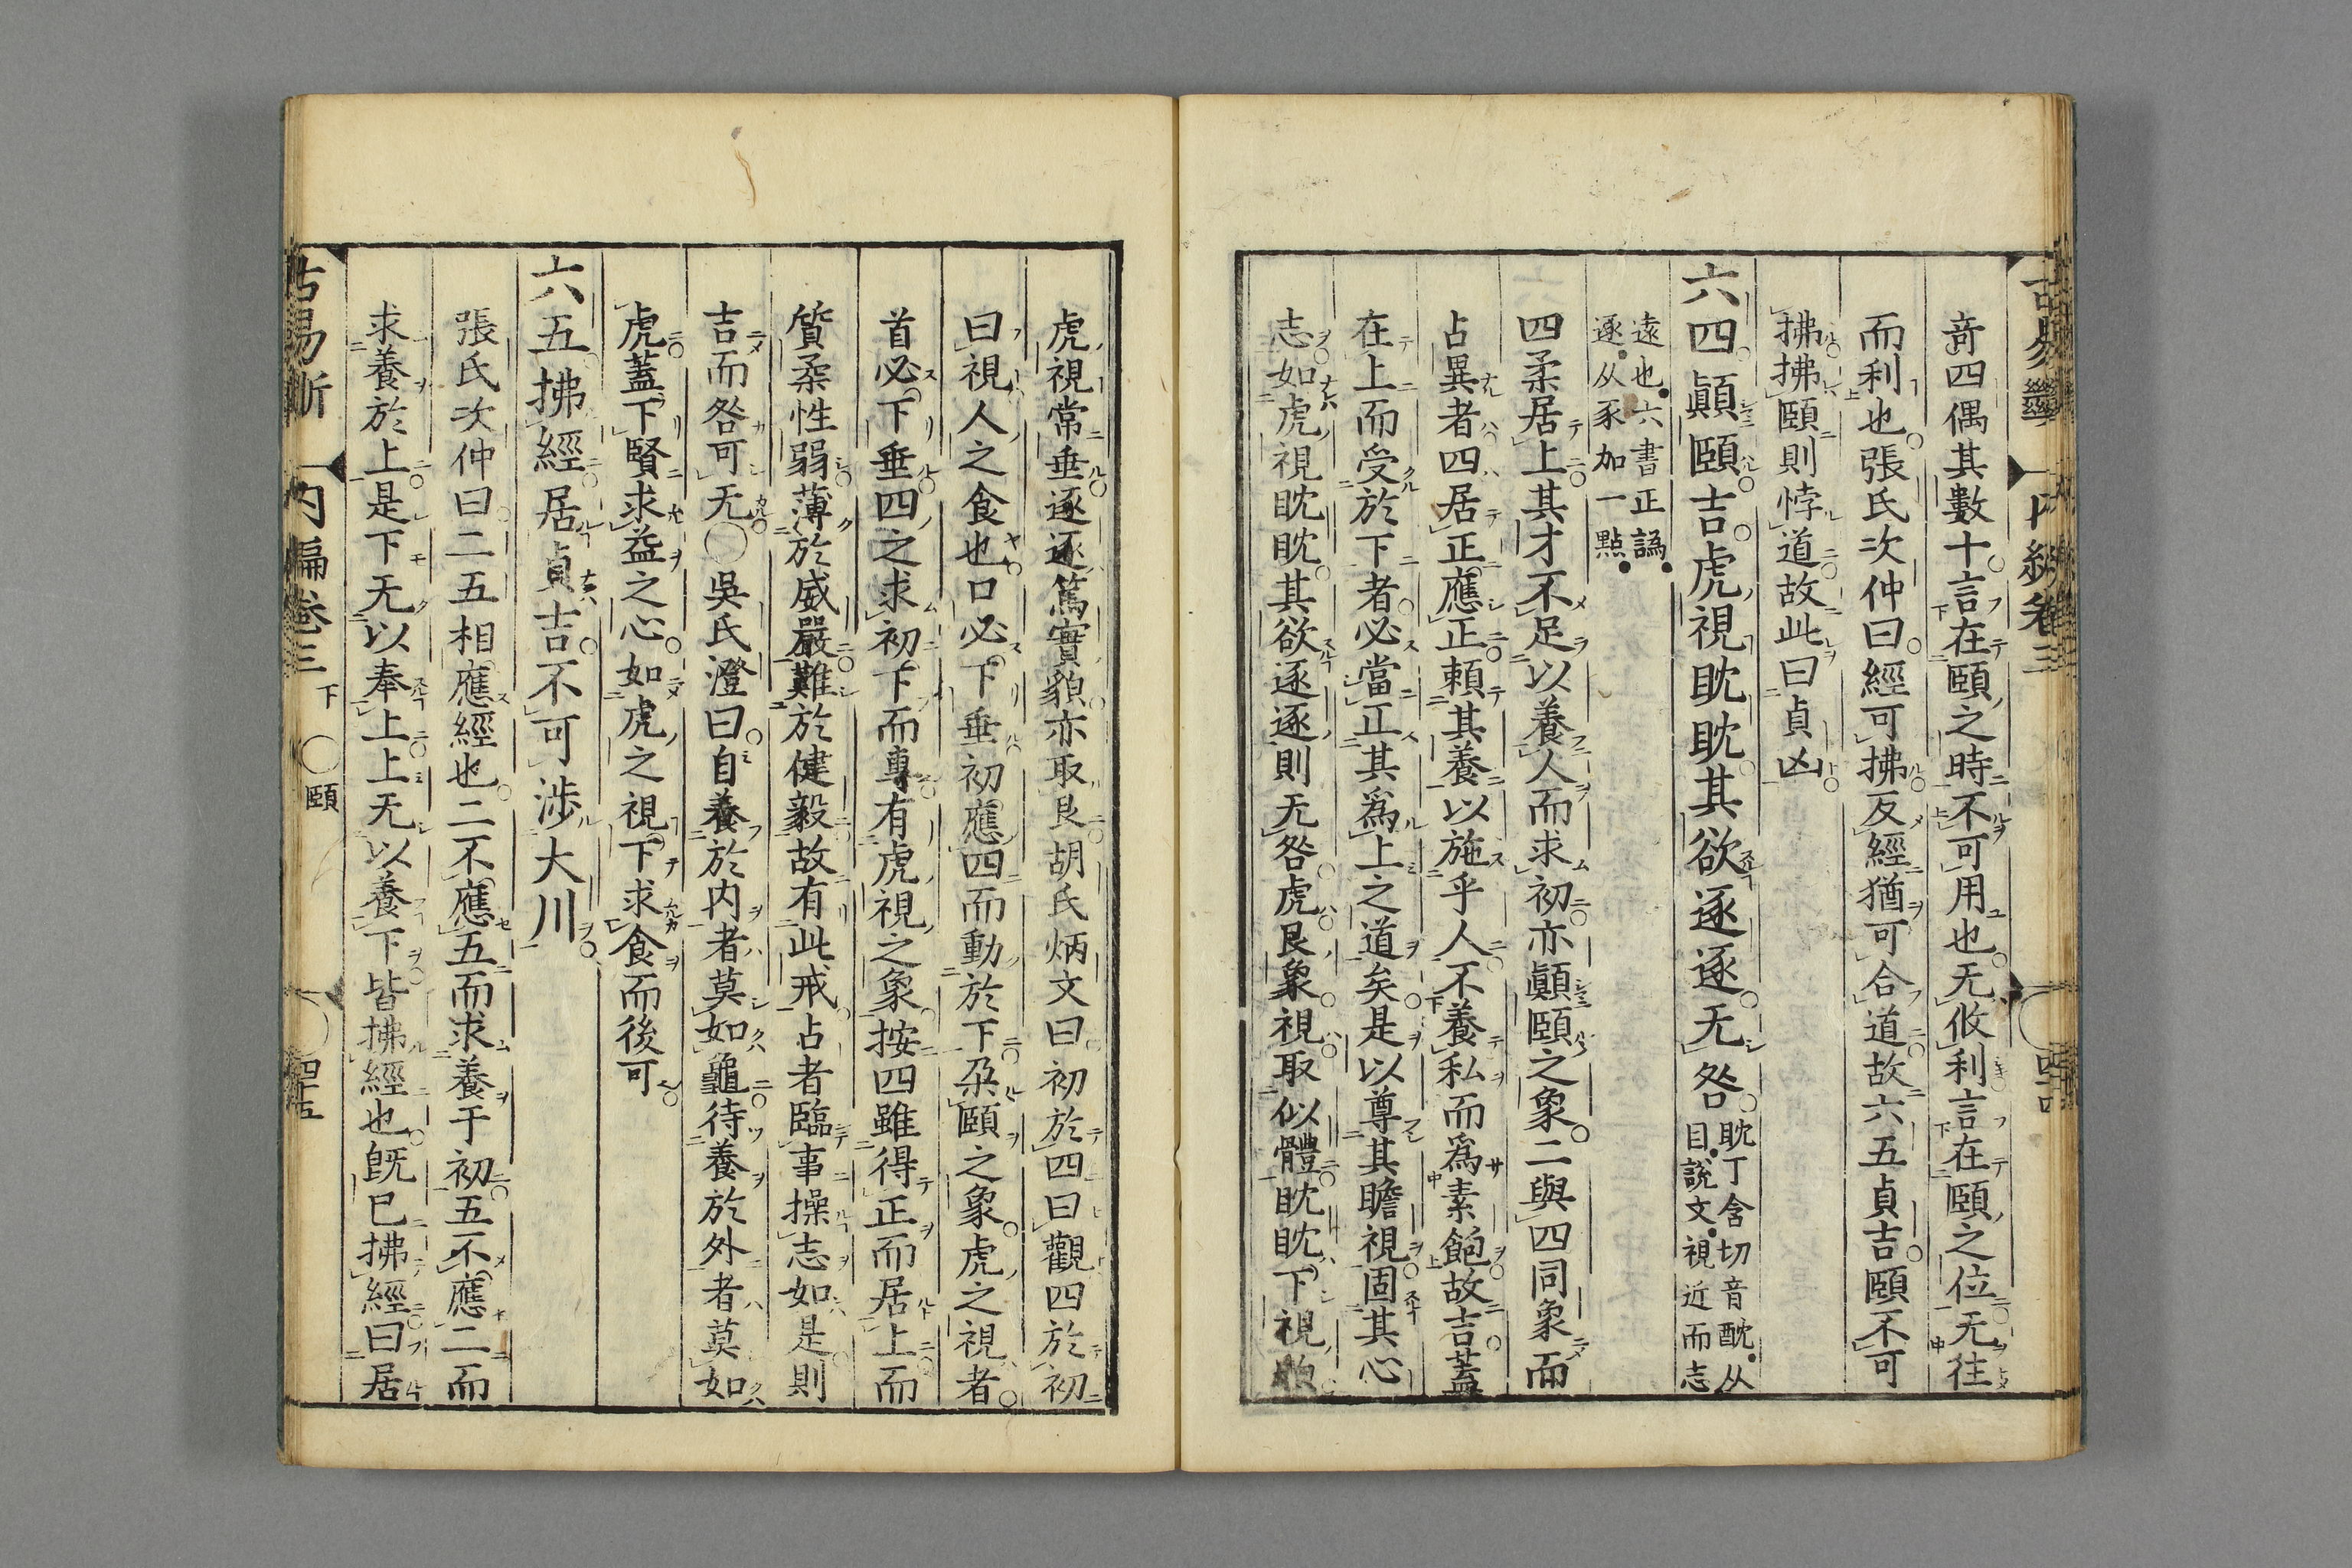 奇四偶其數十言在頤之時不可用也无攸利言在頤之位无往
而利也張氏次仲曰經可拂反經猶可合道故六五貞吉頤不可
拂拂頤則悖道故此曰貞凶
六四顚頤吉虎視眈眈其欲逐逐无咎
眈丁含切音酖从
目説文視近而志
遠也六書正譌
逐从豕加一點
四柔居上其才不足以養人而求初亦顚頤之象二與四同象而
占異者四居正應正賴其養以施乎人不養私而爲素飽故吉蓋
在上而受於下者必當正其爲上之道矣是以尊其瞻視固其心
志如虎視眈眈其欲逐逐則无咎虎艮象視取似體眈眈下視
虎視常垂逐逐篤實貌亦取艮胡氏炳文曰初於四曰觀四於初
曰視人之食也口必下垂初應四而動於下朶頤之象虎之視者
首必下垂四之求初下而專有虎視之象按四雖得正而居上而
質柔性弱薄於威嚴難於健毅故有此戒占者臨事操志如是則
吉而咎可无○吳氏澄曰自養於内者莫如龜待養於外者莫如
虎蓋下賢求益之心如虎之視下求食而後可
六五拂經居貞吉不可涉大川
張氏次仲曰二五相應經也二不應五而求養于初五不應二而
求養於上是下无以奉上上无以養下皆拂經也既已拂經曰居
内編卷三下 ○頤 四十五